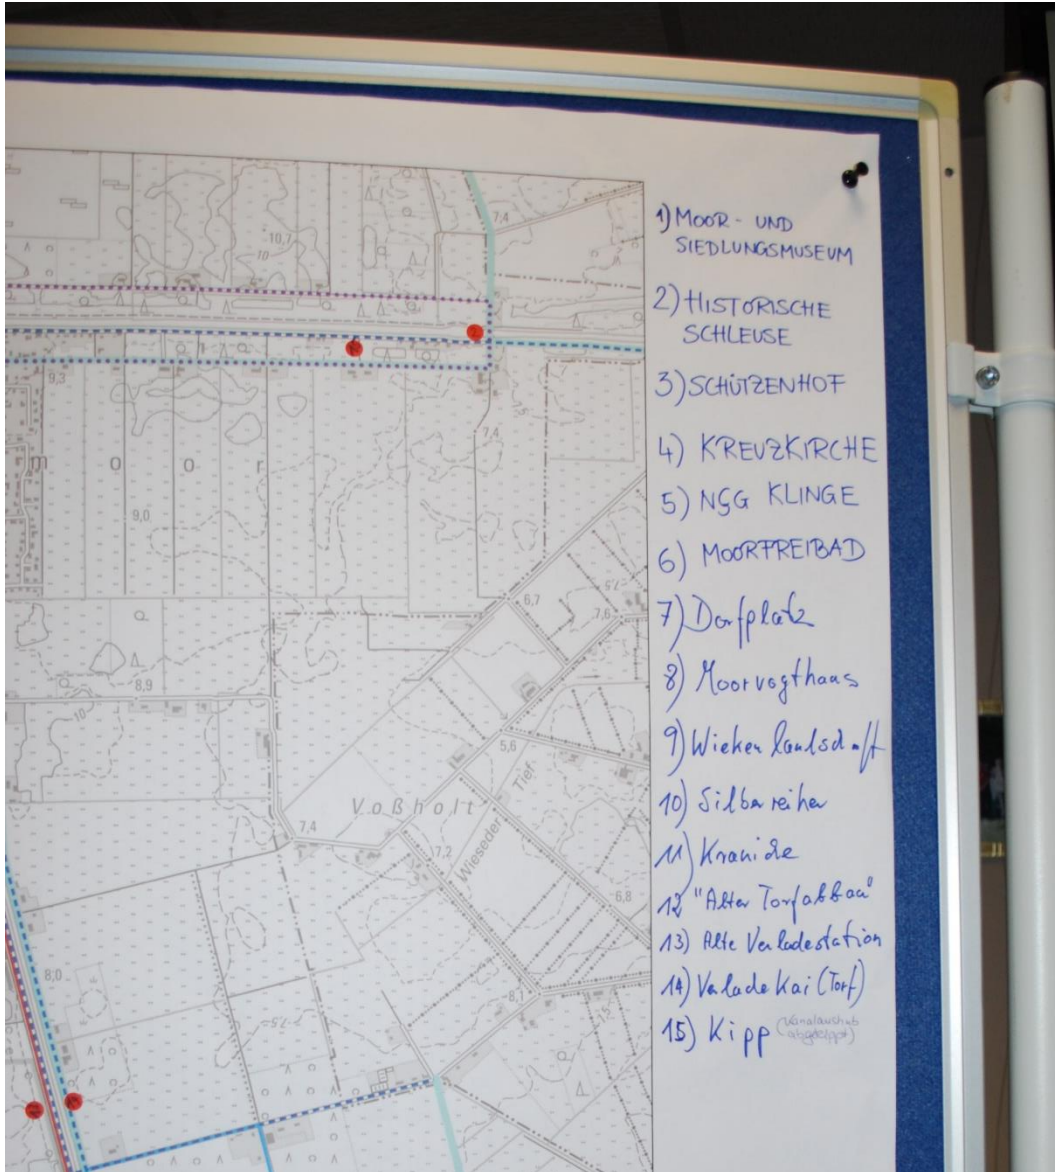 7,4
10,7
10
9,3
7,4
m o o r
9,0
7,5
6,7
7,6
8,9
10
5,6
Tief
Voßholt
7,4
7,2
Wieseder
6,8
8,0
8,1
7,5
1) MOOR- UND
SIEDLUNGSMUSEUM
2) HISTORISCHE
SCHLEUSE
3) SCHÜTZENHOF
4) KREUZKIRCHE
5) NSG KLINGE
6) MOORFREIBAD
7) Dorfplatz
8) Moorvogthaus
9) Wiekenlandschaft
10) Silberreiher
11) Kraniche
12 "Alter Torfabbau"
13) Alte Verladestation
14) Verlade Kai (Torf)
15) Kipp (Kanalaushub
abgekippt)